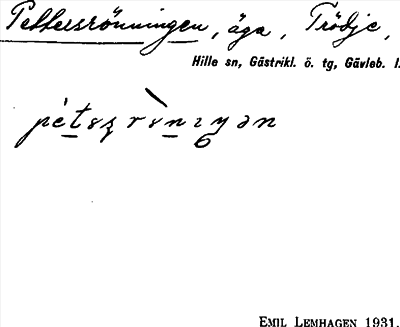 Pettersrönningen, äga, Trödje,
Hille sn, Gästrikl. ö. tg, Gävleb. l.
EMIL LEMHAGEN 1931.